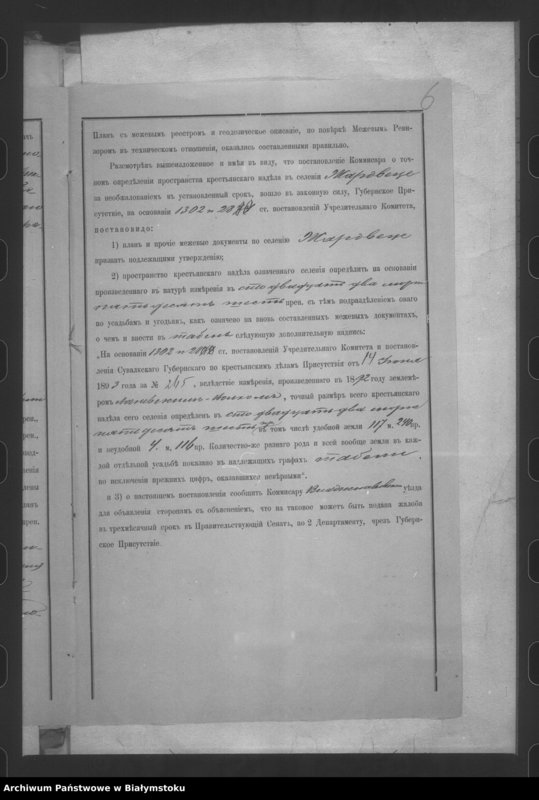 6
Планъ съ межевымъ реестромъ и геодезическое описаніе, по повѣркѣ Межевымъ Реви-
зоромъ въ техническомъ отношеніи, оказались составленными правильно.
Разсмотрѣвъ вышеизложенное и имѣя въ виду, что постановленіе Комисара о точ-
номъ опредѣленіи пространства крестьянскаго надѣла въ селеніи
за необжалованіемъ въ установленный срокъ, вошло въ законную силу, Губернское При-
сутствіе, на основаніи 1302 и ст. постановленій Учредительнаго Комитета,
постановило:
1) планъ и прочіе межевые документы по селенію
признать подлежащими утвержденію;
2) пространство крестьянскаго надѣла означеннаго селенія опредѣлить на основаніи
произведеннаго въ натурѣ измѣренія въ сто двадцать два морг.
пятьдесятъ шесть прен. съ тѣмъ подраздѣленіемъ онаго
по усадьбамъ и угодьямъ, какъ означено на вновь составленныхъ межевыхъ документахъ,
о чемъ и внести въ табель слѣдующую дополнительную надпись:
„На основаніи 1302 и ст. постановленій Учредительнаго Комитета и постанов-
ленія Сувалкскаго Губернскаго по крестьянскимъ дѣламъ Присутствія отъ 14 Іюня
1893 года за № 265, вслѣдствіе измѣренія, произведеннаго въ 1892 году землемѣ-
ромъ , точный размѣръ всего крестьянскаго
надѣла сего селенія опредѣленъ въ сто двадцать два морг.
пятьдесятъ шесть въ томъ числѣ удобной земли 117 м. 240 пр.
и неудобной 4 м. 116 пр. Количество-же разнаго рода и всей вообще земли въ каж-
дой отдѣльной усадьбѣ показано въ надлежащихъ графахъ табели,
по исключеніи прежнихъ цифръ, оказавшихся невѣрными“.
и 3) о настоящемъ постановленіи сообщить Комисару уѣзда
для объявленія сторонамъ съ объясненіемъ, что на таковое можетъ быть подана жалоба
въ трехмѣсячный срокъ въ Правительствующій Сенатъ, по 2 Департаменту, чрезъ Губерн-
ское Присутствіе.
Archiwum Państwowe w Białymstoku